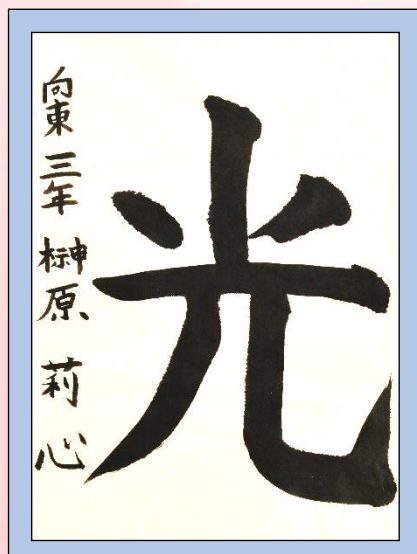 光
向東 三年 榊原 莉心